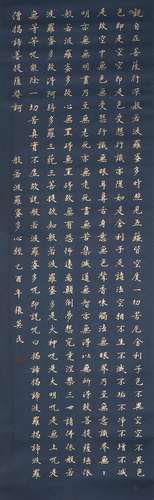 觀自在菩薩行深般若波羅蜜多時照見五蘊皆空度一切苦厄舍利子色不異空空不異色色
即是空空即是色受想行識亦復如是舍利子是諸法空相不生不滅不垢不淨不增不減
是故空中無色無受想行識無眼耳鼻舌身意無色聲香味觸法無眼界乃至無意識界無
無明亦無無明盡乃至無老死亦無老死盡無苦集滅道無智亦無得以無所得故菩提薩埵依
般若波羅蜜多故心無罣礙無罣礙故無有恐怖遠離顛倒夢想究竟涅槃三世諸佛依般若
波羅蜜多故得阿耨多羅三藐三菩提故知般若波羅蜜多是大神咒是大明咒是無上咒是
無等等咒能除一切苦真實不虛故說般若波羅蜜多咒即說咒曰揭諦揭諦波羅揭諦波羅
僧揭諦菩提薩婆訶 般若波羅蜜多心經 酉年 張英